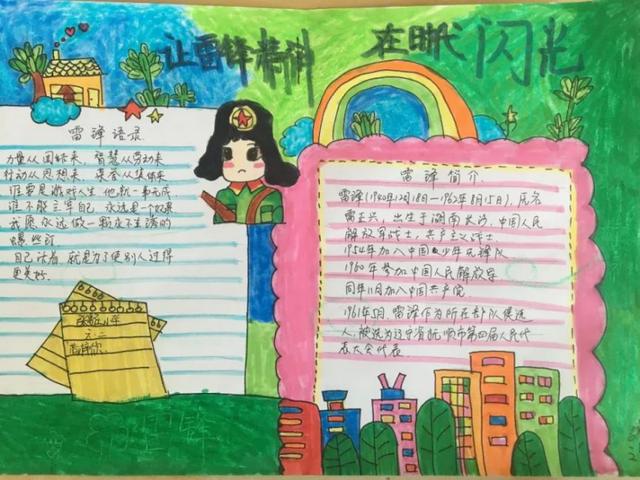 让雷锋精神 在时代闪光
雷锋语录
力量从团结来，智慧从劳动来
行动从思想来，荣誉从集体来
谁要是游戏人生 他就一事无成
谁不能主宰自己 永远是一个奴隶
我愿永远做一颗永不生锈的
螺丝钉
自己活着 就是为了使别人过得
更美好.
雷锋简介
雷锋(1940年12月18日—1962年8月15日)，原名
雷正兴，出生于湖南长沙，中国人民
解放军战士，共产主义战士.
1954年加入中国少年先锋队
1960年参加中国人民解放军
同年11月加入中国共产党
1961年5月，雷锋作为所在部队候选
人，被选为辽宁省抚顺市第四届人民代
表大会代表